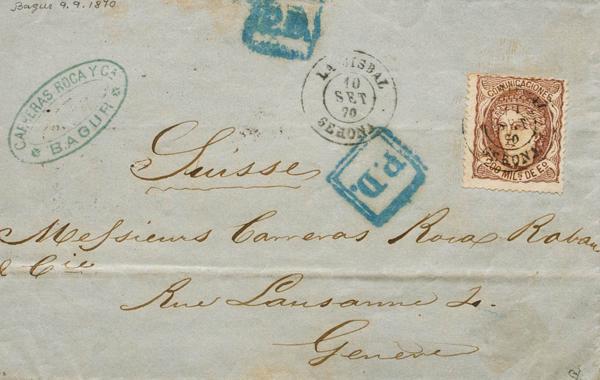 Bagur 9.9.1870
P.D.
CARRERAS ROCA Y Cª
BAGUR
LA BISBAL
10
SET
70
GERONA
COMUNICACIONES
MILS DE Eº
P.D.
Suisse
Messieurs Carreras Roca Rabau
& Cie
Rue Lausanne 2.
Genève